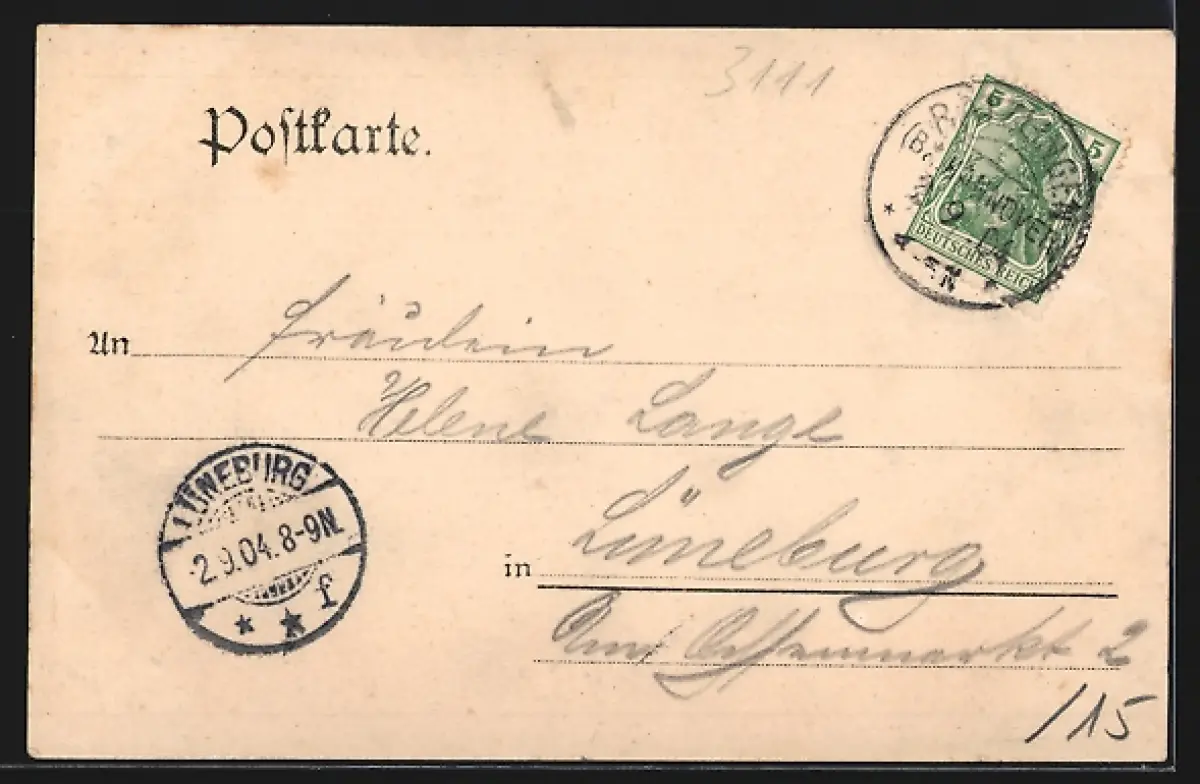 3111
Postkarte.
5 5
HANNOVER
9 04
DEUTSCHES REICH
4-5N
An Fräulein
Helene Lange
LÜNEBURG
2.9.04.8-9N.
* * f
in Lüneburg
Am Ochsenmarkt 2
/15